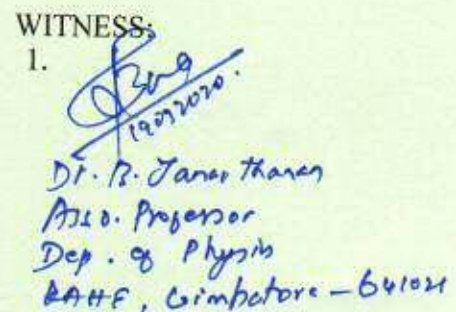 WITNESS:
1.
19092020.
Dr. B. Janarthanan
Asso. Professor
Dep. of Physics
KAHE, Coimbatore – 641021